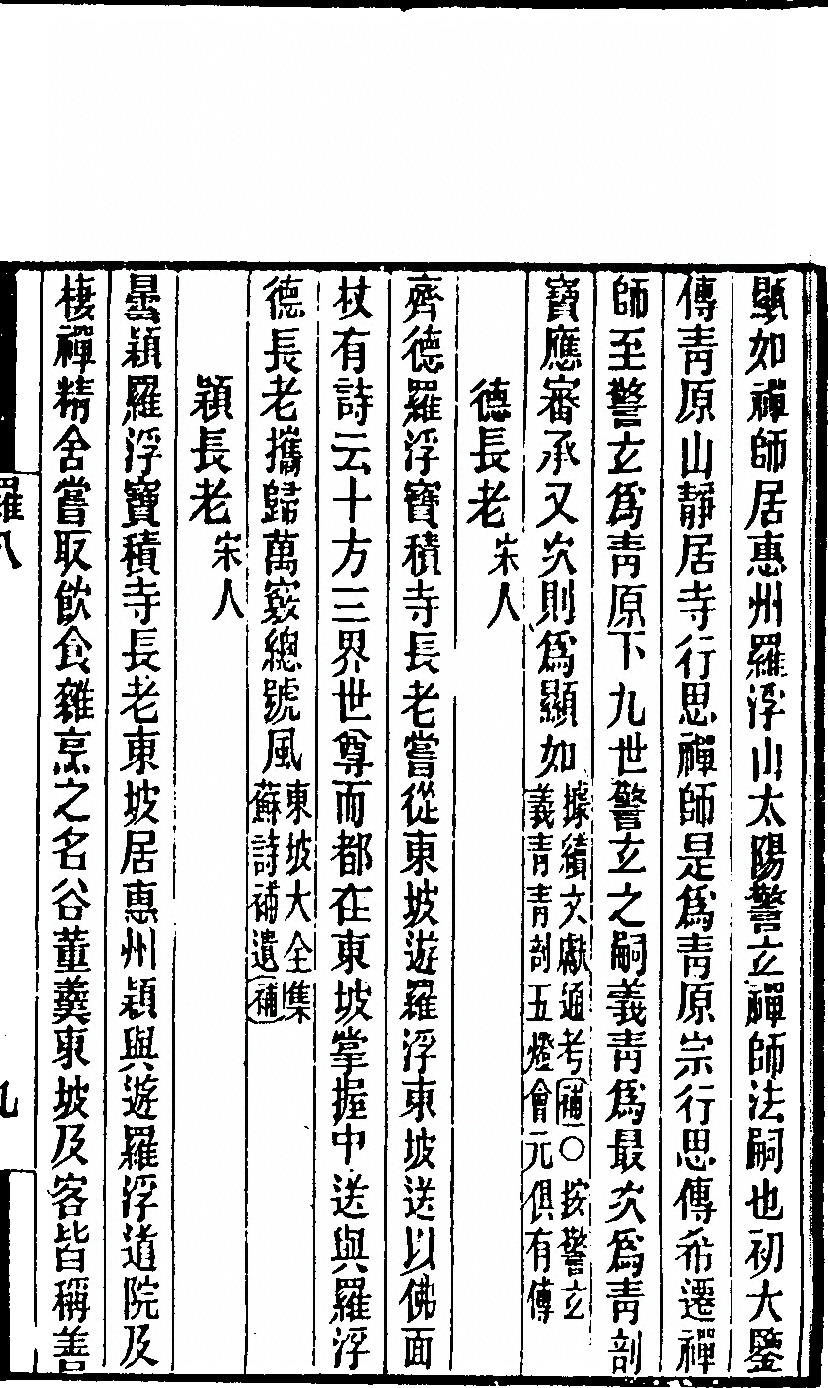 顯如禪師居惠州羅浮山太陽警玄禪師法嗣也初大鑒
傳青原山靜居寺行思禪師是爲青原宗行思傳希遷禪
師至警玄爲青原下九世警玄之嗣義青爲最次爲青剖
寶應審承又次則爲顯如據續文獻通考補○按警玄
義青青剖五燈會元俱有傳
德長老宋人
齊德羅浮寶積寺長老嘗從東坡遊羅浮東坡送以佛面
杖有詩云十方三界世尊面都在東坡掌握中送與羅浮
德長老攜歸萬竅總號風東坡大全集
蘇詩補遺補
穎長老宋人
曇穎羅浮寶積寺長老東坡居惠州穎與遊羅浮道院及
棲禪精舍嘗取飲食雜烹之名谷董羹東坡及客皆稱善
羅八
九